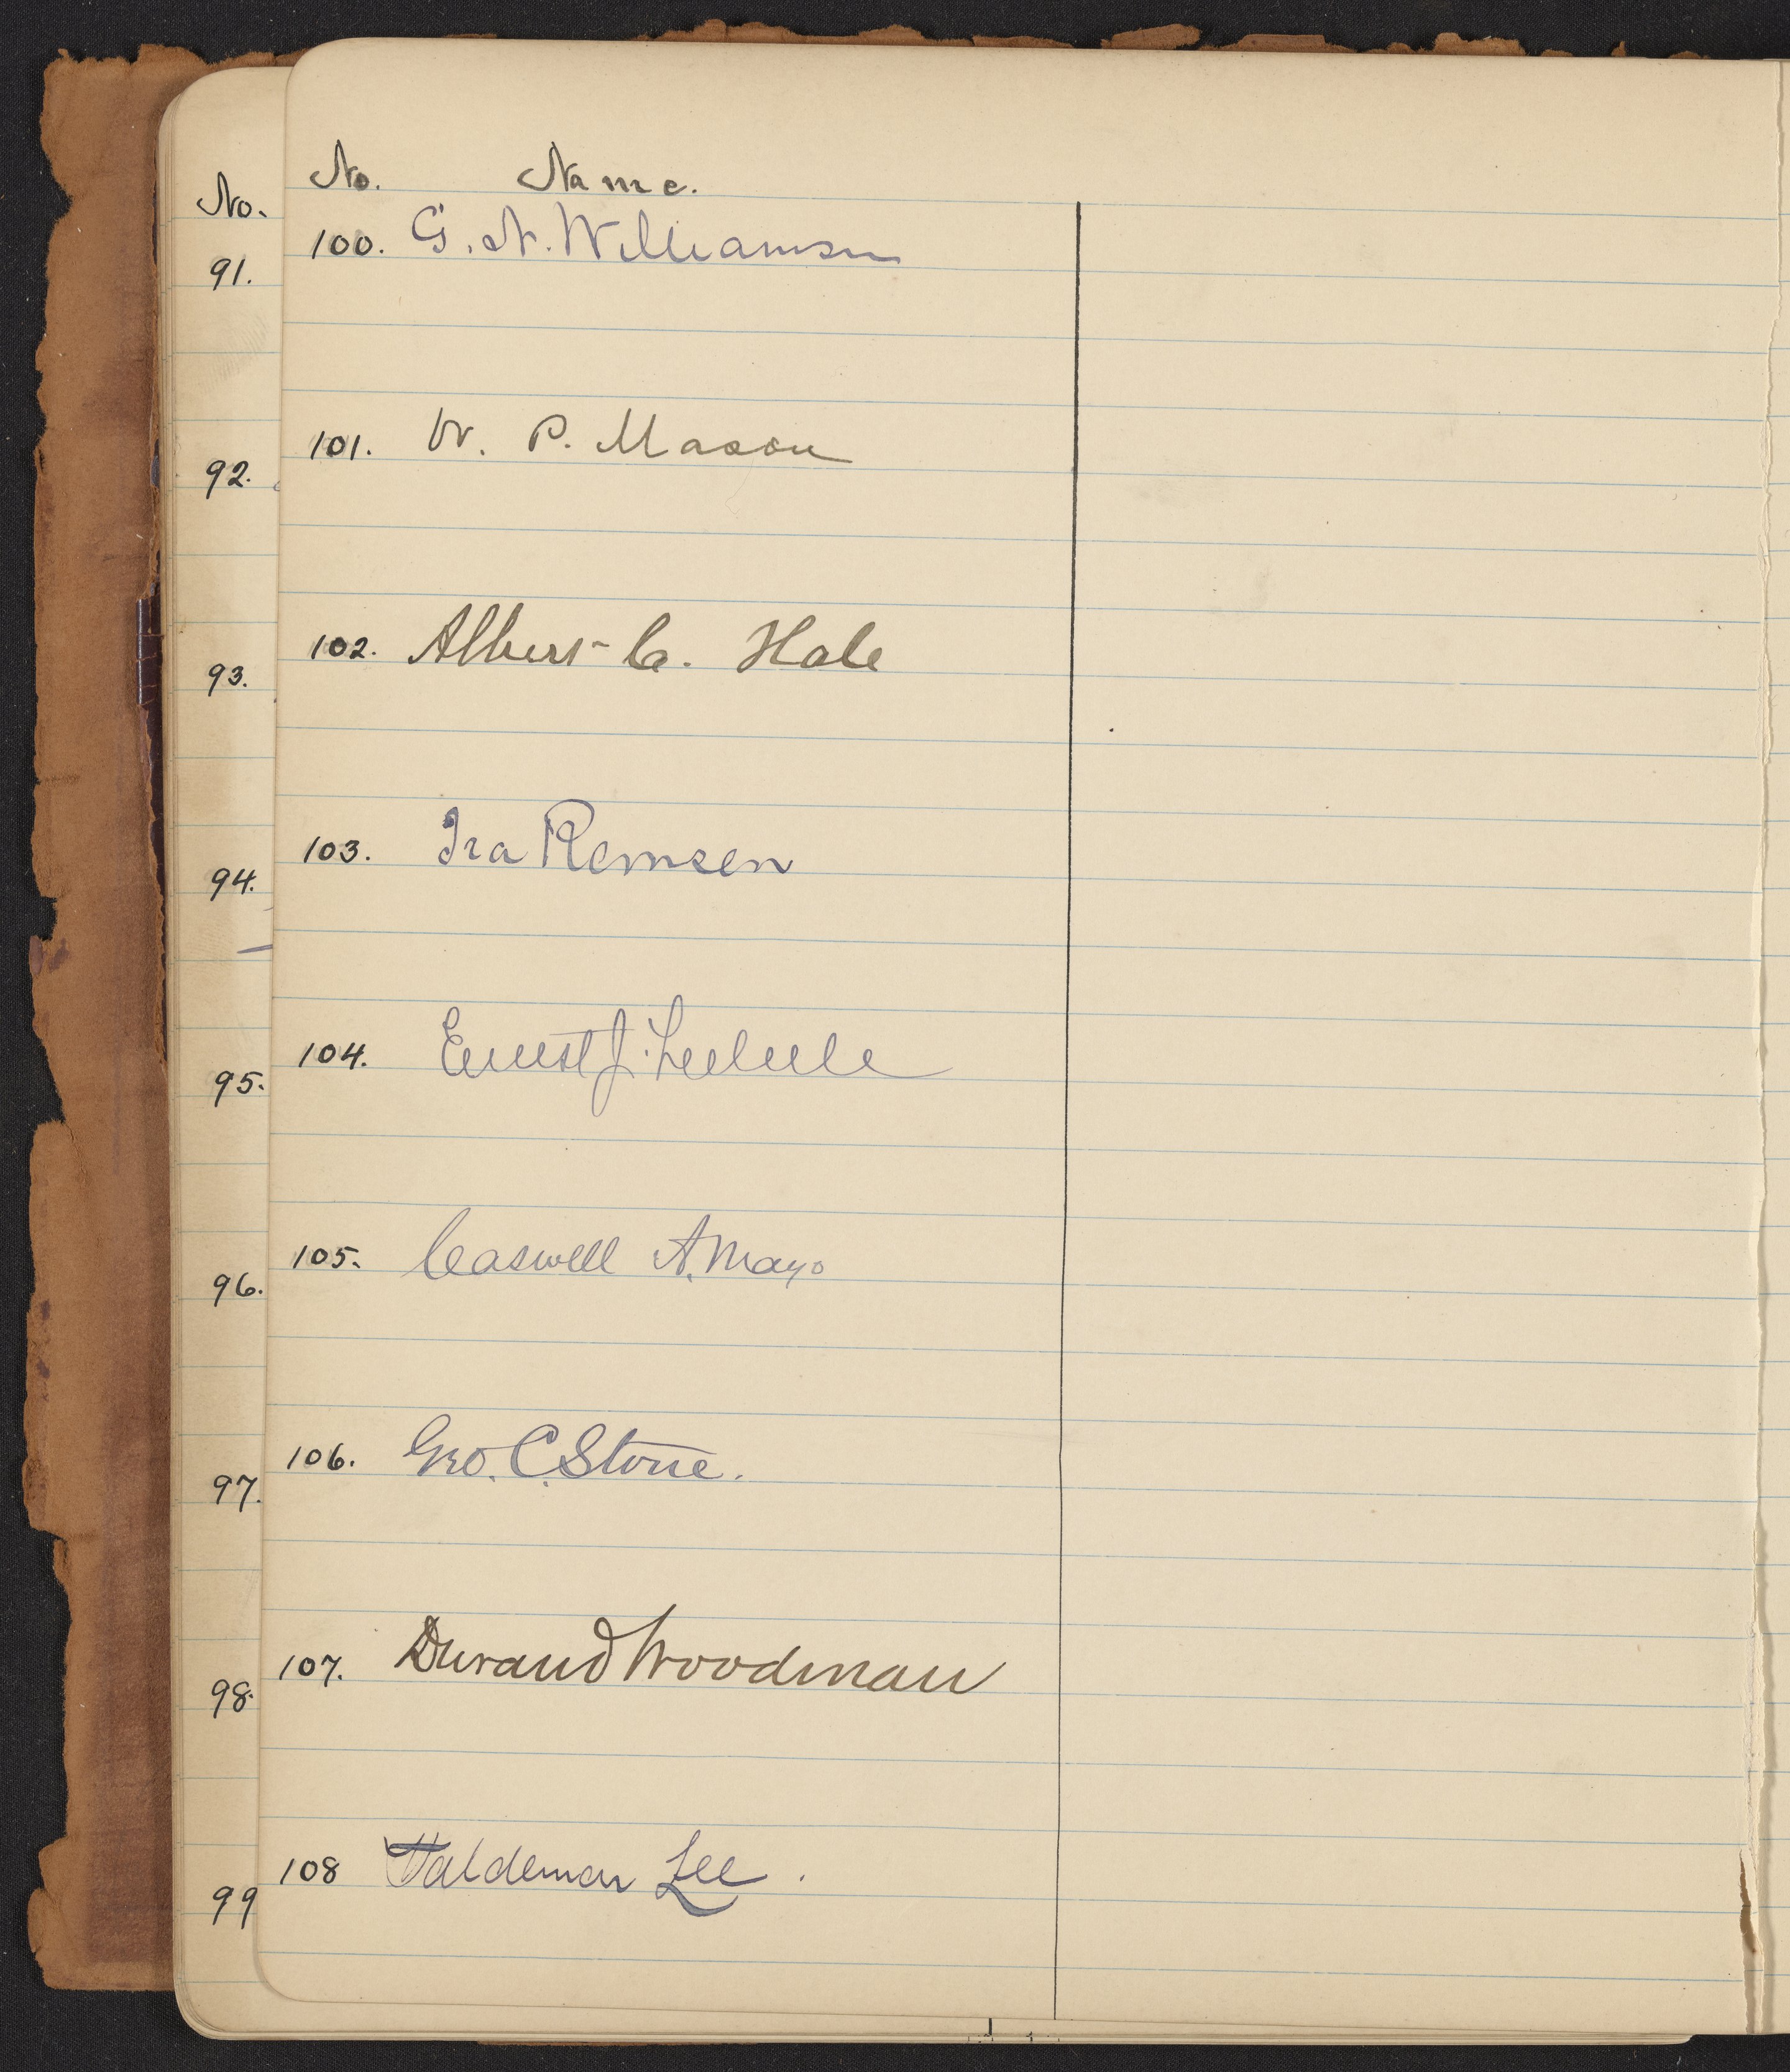 No. Name.
100. G. N. Williamson
101. W. P. Mason
102. Albert C. Hale
103. Ira Remsen
104. Ernest J. Lederle
105. Caswell A. Mayo
106. Geo. C. Stone.
107. Durand Woodman
108 Waldemar Lee.
No.
91.
92.
93.
94.
95.
96.
97.
98.
99